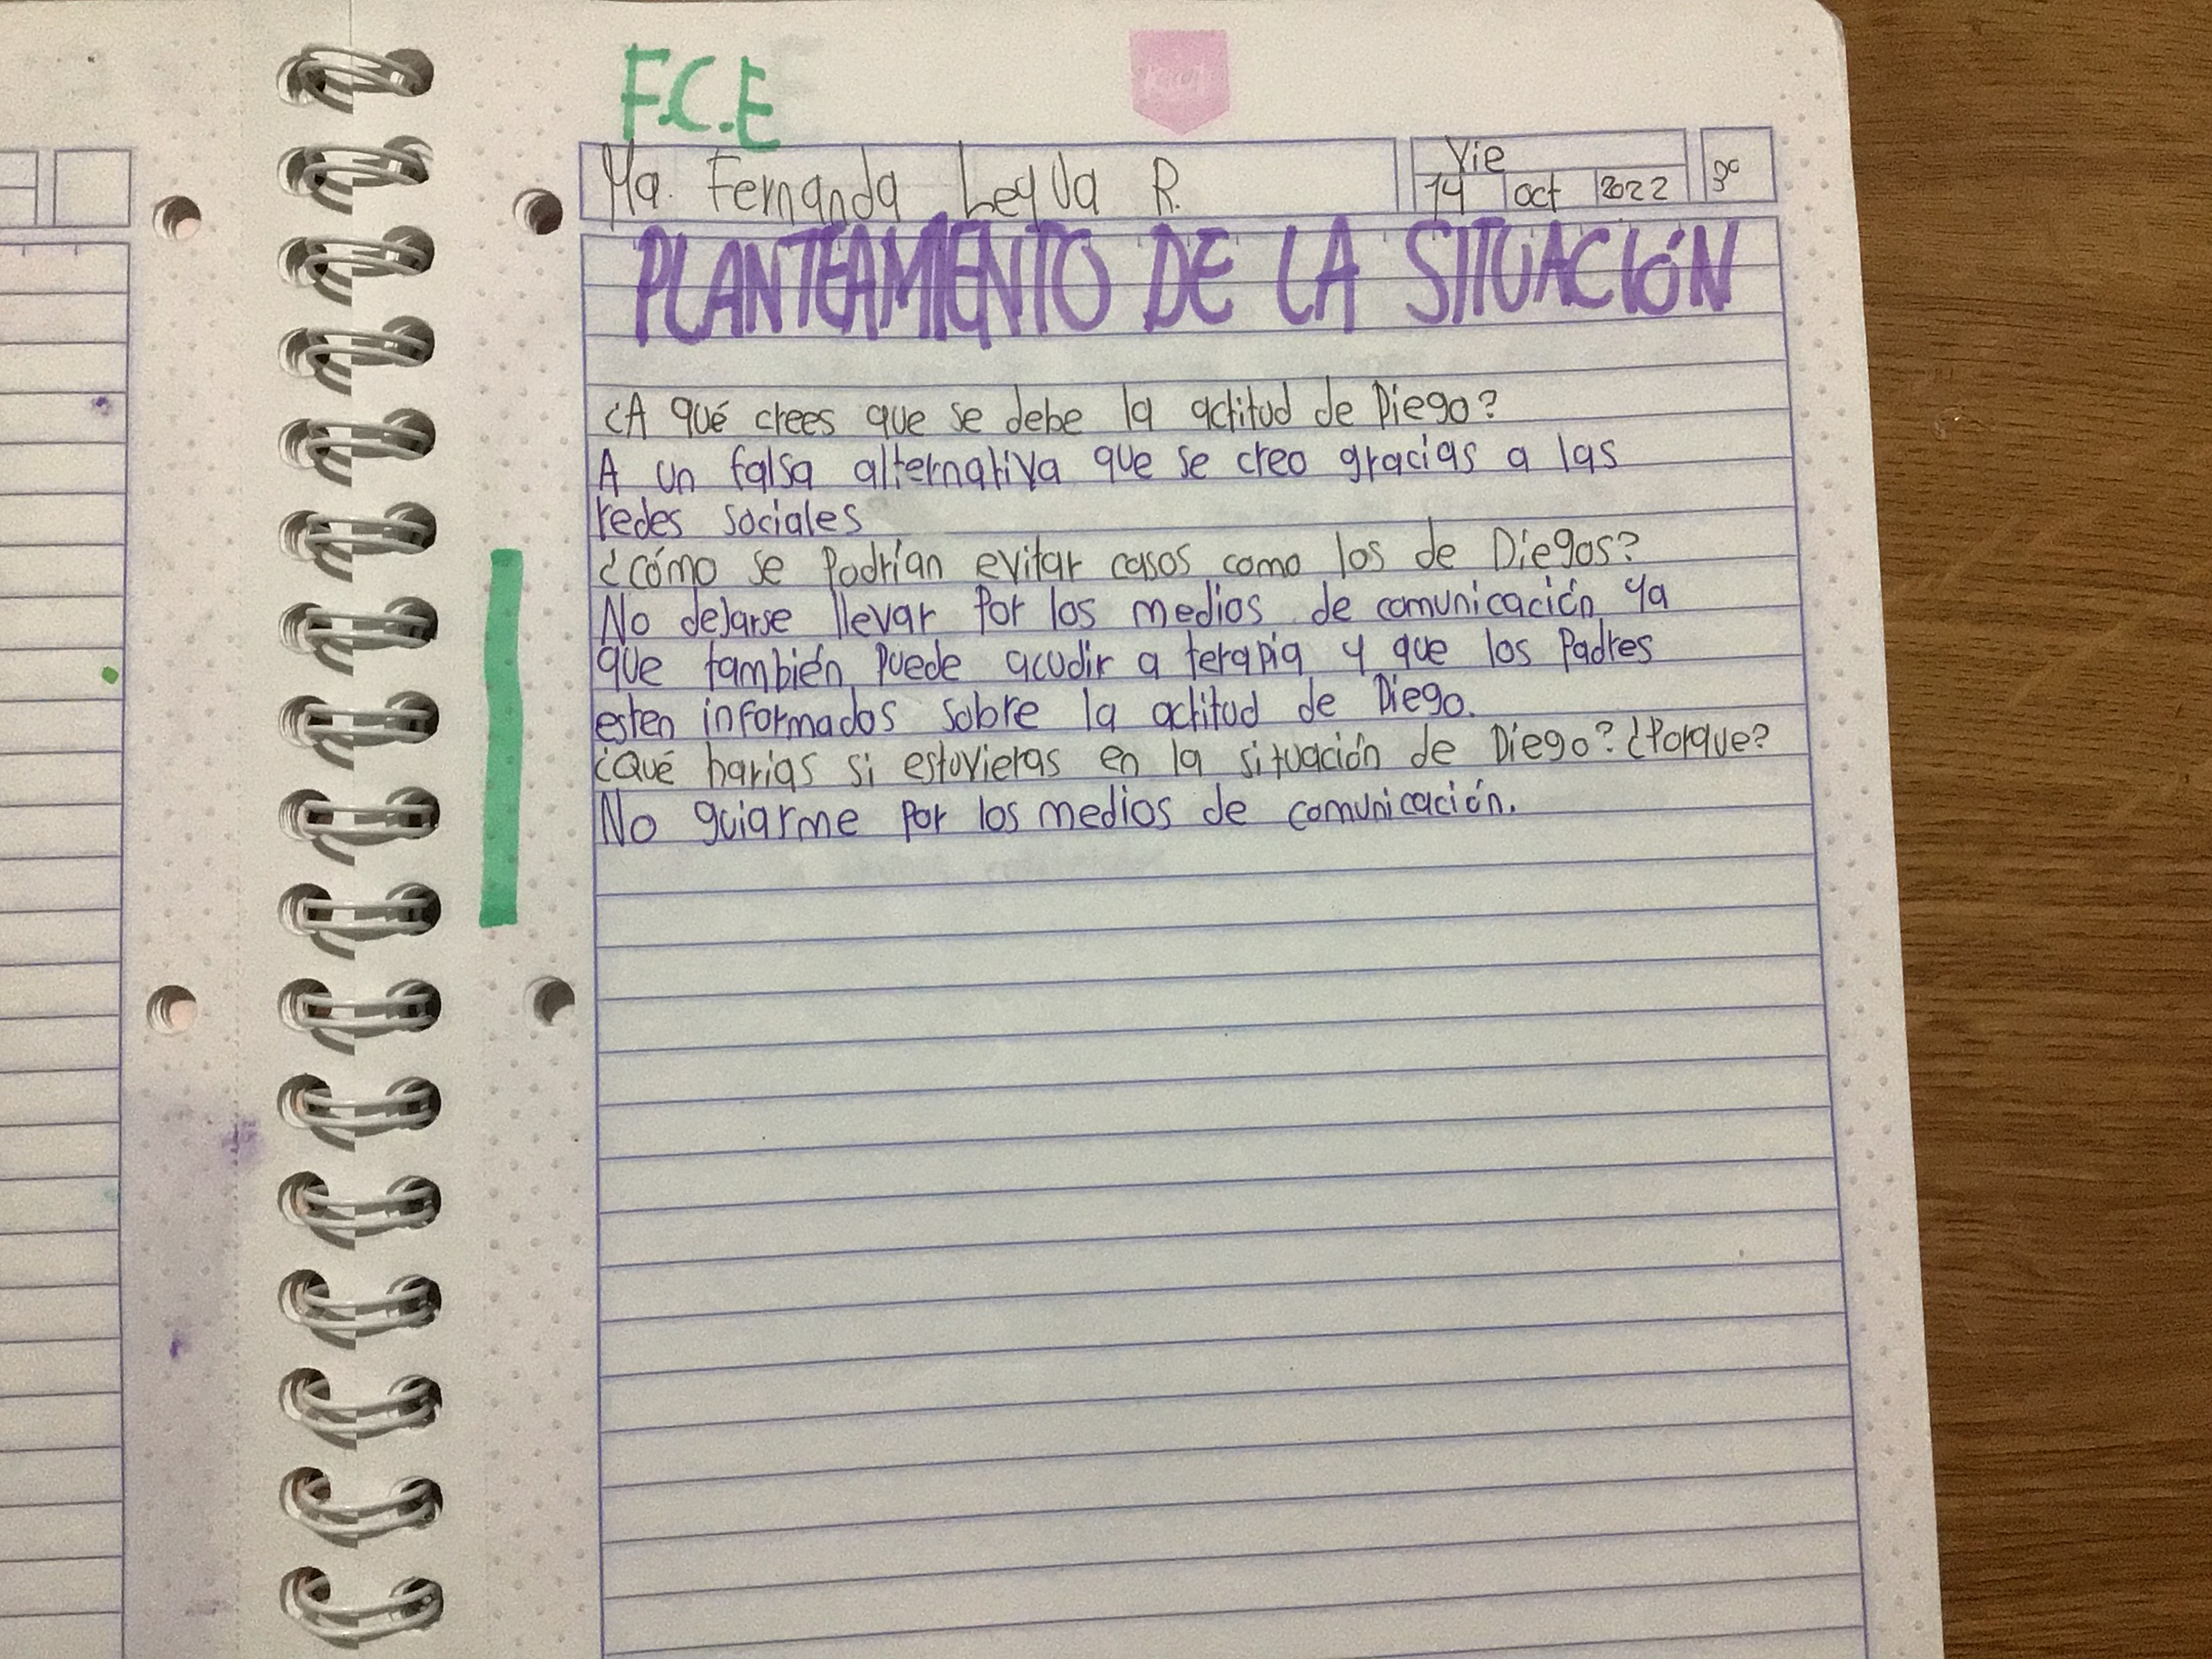 F.C.E
Kiut
Ma. Fernanda Leyva R.
Vie
14 oct 2022
3°
PLANTEAMIENTO DE LA SITUACIÓN
¿A qué crees que se debe la actitud de Diego?
A un falsa alternativa que se creo gracias a las
redes sociales
¿cómo se Podrían evitar casos como los de Diegos?
No dejarse llevar Por los medios de comunicación ya
que también Puede acudir a terapia y que los Padres
esten informados sobre la actitud de Diego.
¿Qué harias si estuvieras en la situación de Diego? ¿Porque?
No guiarme Por los medios de comunicación.